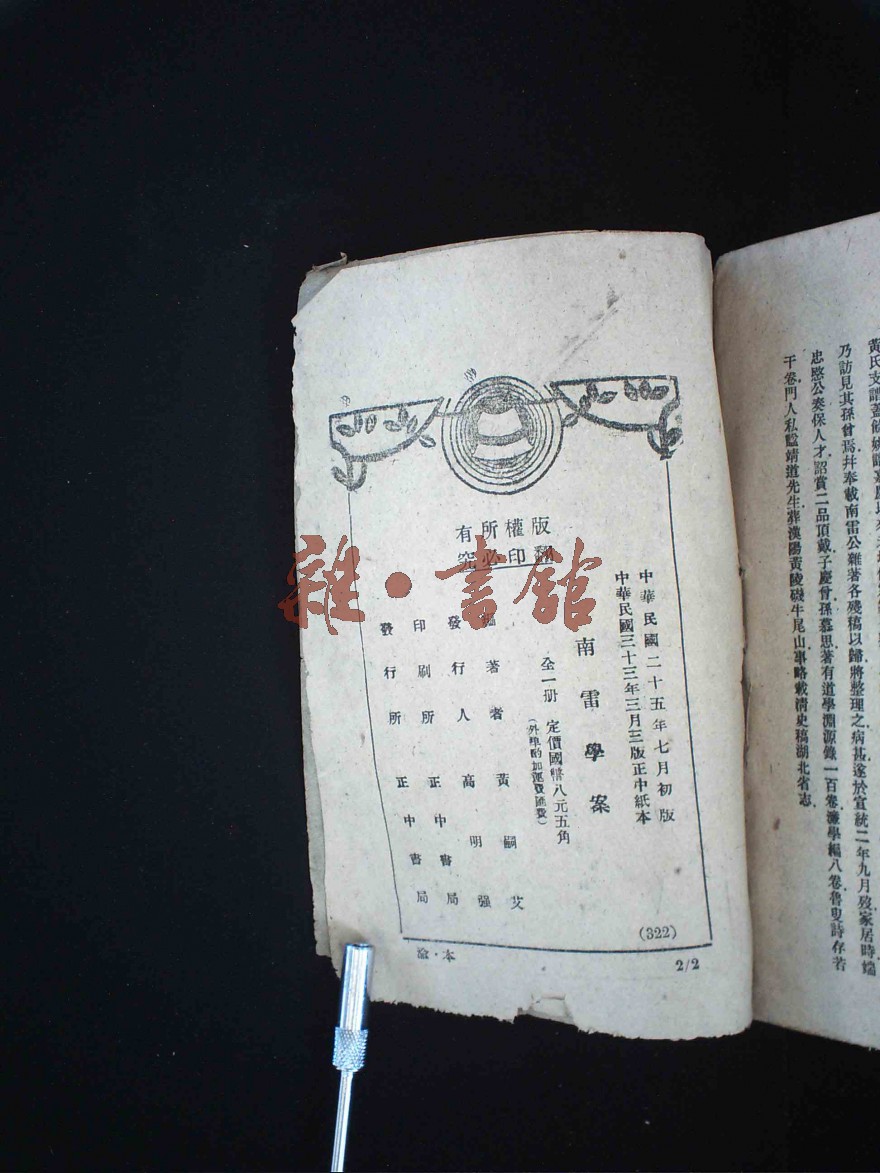 黃氏支譜蓋
乃訪見其孫曾焉幷奉載南雷公雜著各殘稿以歸將整理之病甚遂於宣統二年九月歿家居時端
忠愍公奏保人才詔賞二品頂戴子慶曾孫慕思著有道學淵源錄一百卷濂學編八卷魯叟詩存若
干卷門人私諡靖道先生葬漢陽黃陵磯牛尾山事略載淸史稿湖北省志
版權所有
翻印必究
中華民國二十五年七月初版
中華民國三十三年三月三版正中紙本
南雷學案
全一册 定價國幣八元五角
(外埠酌加運費匯費)
編著者 黃嗣艾
發行人 高明强
印刷所 正中書局
發行所 正中書局
(322)
渝·本
2/2
雜·書館